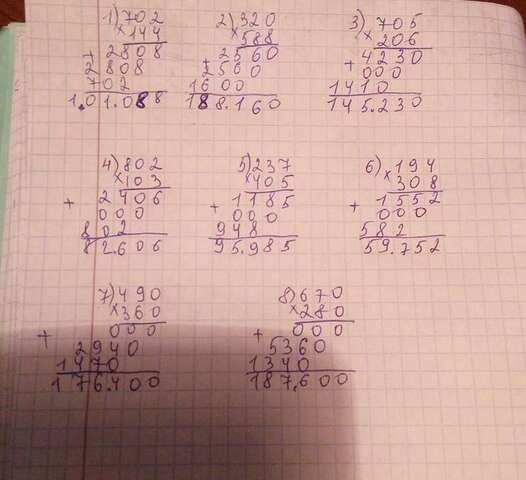 1) 702
×144
+ 2808
2808
702
1.01.088
2) 320
×588
2560
+ 2560
1600
188.160
3) 705
×206
4230
+ 000
1410
145.230
4) 802
×103
+ 2406
000
802
82.606
5) 237
×405
1185
+ 000
948
95.985
6) 194
×308
1552
+ 000
582
59.752
7) 490
×360
000
+ 2940
1470
176.400
8) 670
×280
000
+ 5360
1340
187.600